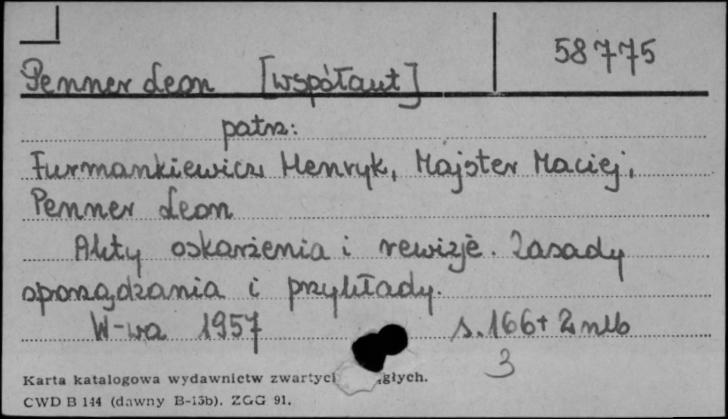 58775
Penner Leon [współaut]
patrz:
Furmankiewicz Henryk, Majster Maciej,
Penner Leon
Akty oskarżenia i rewizje. Zasady
sporządzania i przykłady.
W-wa 1957 s. 166+2 nlb
3
Karta katalogowa wydawnictw zwartyc głych.
CWD B 144 (dawny B-15b). ZGG 91.